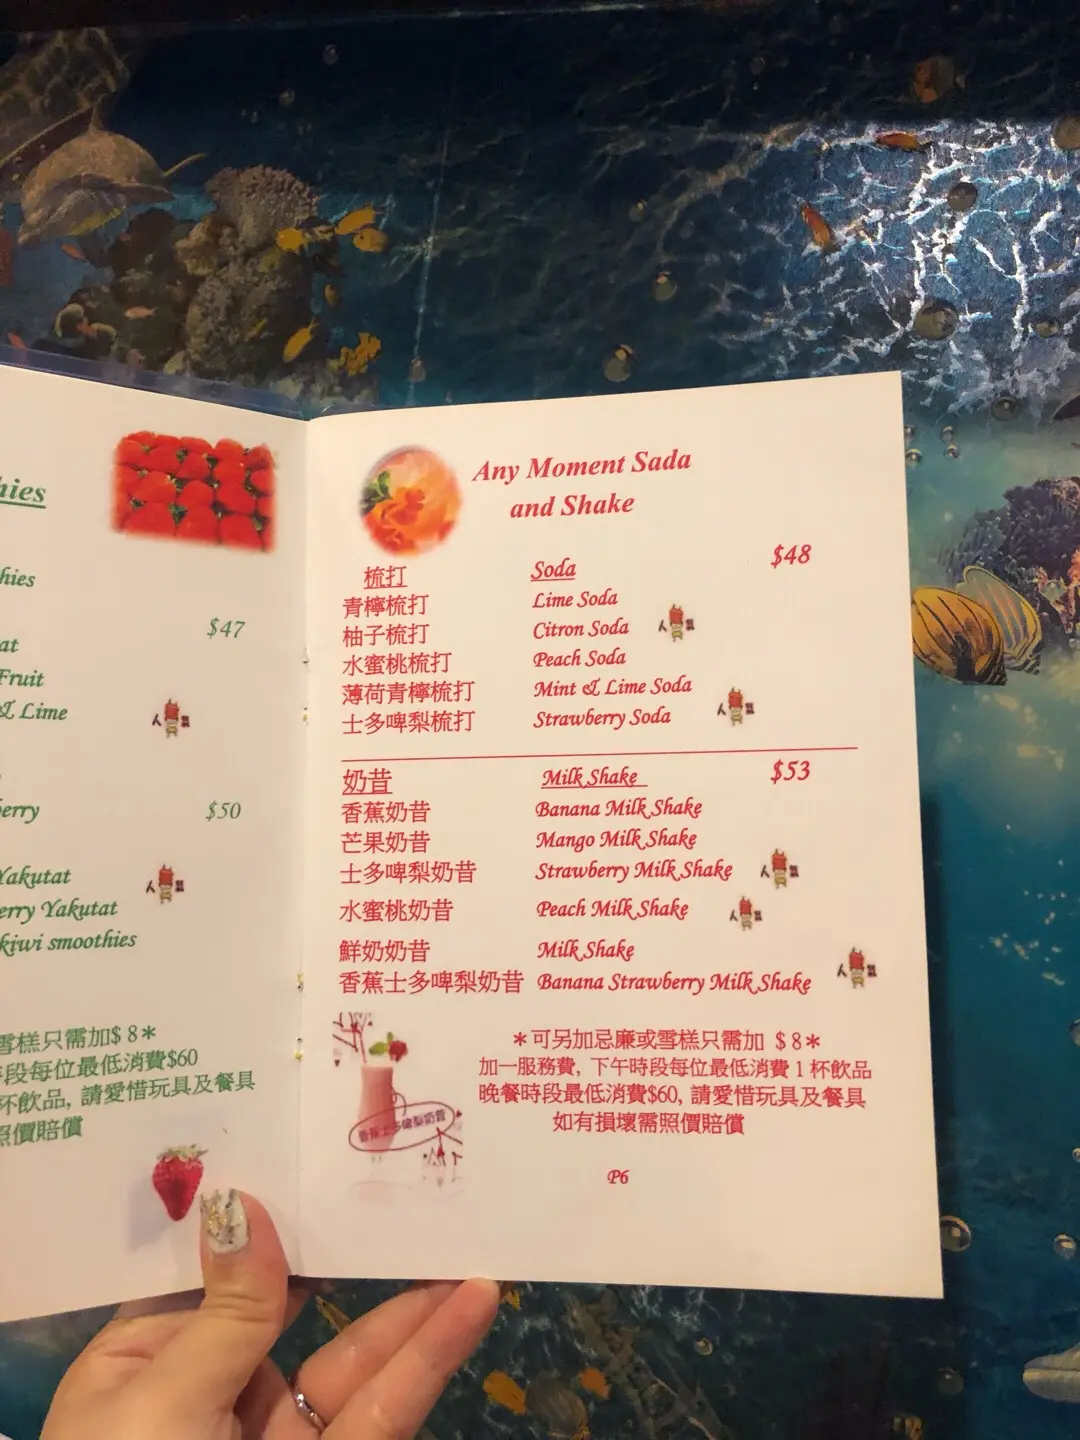 hies
hies
$47
at
Fruit
& Lime
人氣
erry
$50
Yakutat
人氣
erry Yakutat
kiwi smoothies
雪糕只需加$ 8＊
段每位最低消費$60
杯飲品, 請愛惜玩具及餐具
照價賠償
Any Moment Sada
and Shake
梳打 Soda $48
青檸梳打 Lime Soda
柚子梳打 Citron Soda 人氣
水蜜桃梳打 Peach Soda
薄荷青檸梳打 Mint & Lime Soda
士多啤梨梳打 Strawberry Soda 人氣
奶昔 Milk Shake $53
香蕉奶昔 Banana Milk Shake
芒果奶昔 Mango Milk Shake
士多啤梨奶昔 Strawberry Milk Shake 人氣
水蜜桃奶昔 Peach Milk Shake 人氣
鮮奶奶昔 Milk Shake
香蕉士多啤梨奶昔 Banana Strawberry Milk Shake 人氣
＊可另加忌廉或雪糕只需加 $ 8＊
加一服務費, 下午時段每位最低消費 1 杯飲品
晚餐時段最低消費$60, 請愛惜玩具及餐具
如有損壞需照價賠償
P6